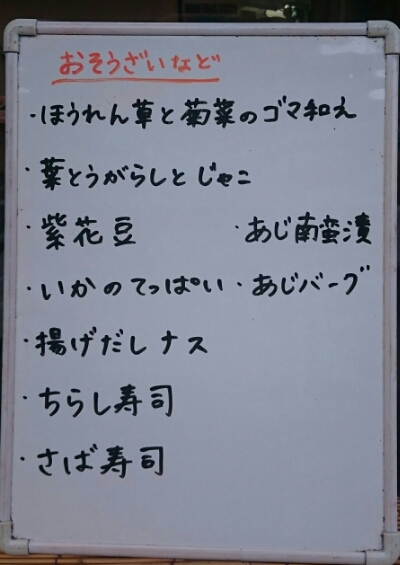 おそうざいなど
・ほうれん草と菊菜のゴマ和え
・葉とうがらしとじゃこ
・紫花豆 ・あじ南蛮漬
・いかのてっぱい ・あじバーグ
・揚げだしナス
・ちらし寿司
・さば寿司